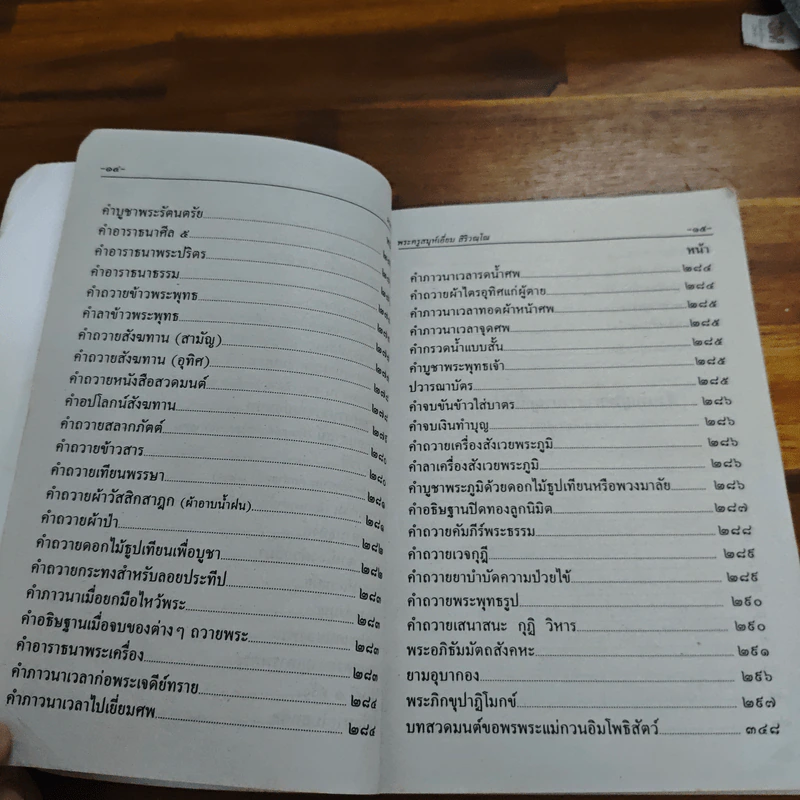 -๑๔-
คำบูชาพระรัตนตรัย
คำอาราธนาศีล ๕
คำอาราธนาพระปริตร
คำอาราธนาธรรม
คำถวายข้าวพระพุทธ
คำลาข้าวพระพุทธ
คำถวายสังฆทาน (สามัญ)
คำถวายสังฆทาน (อุทิศ)
คำถวายหนังสือสวดมนต์
คำอปโลกน์สังฆทาน
คำถวายสลากภัตต์
คำถวายข้าวสาร
คำถวายเทียนพรรษา
คำถวายผ้าวัสสิกสาฎก (ผ้าอาบน้ำฝน)
คำถวายผ้าป่า
คำถวายดอกไม้ธูปเทียนเพื่อบูชา ๒๘๒
คำถวายกระทงสำหรับลอยประทีป ๒๘๒
คำภาวนาเมื่อยกมือไหว้พระ ๒๘๓
คำอธิษฐานเมื่อจบของต่างๆ ถวายพระ ๒๘๓
คำอาราธนาพระเครื่อง ๒๘๓
คำภาวนาเวลาก่อพระเจดีย์ทราย ๒๘๔
คำภาวนาเวลาไปเยี่ยมศพ ๒๘๔
พระครูสมุห์เอี่ยม สิริวณฺโณ -๑๕-
หน้า
คำภาวนาเวลารดน้ำศพ ๒๘๔
คำถวายผ้าไตรอุทิศแก่ผู้ตาย ๒๘๔
คำภาวนาเวลาทอดผ้าหน้าศพ ๒๘๕
คำภาวนาเวลาจุดศพ ๒๘๕
คำกรวดน้ำแบบสั้น ๒๘๕
คำบูชาพระพุทธเจ้า ๒๘๕
ปวารณาบัตร ๒๘๕
คำจบขันข้าวใส่บาตร ๒๘๖
คำจบเงินทำบุญ ๒๘๖
คำถวายเครื่องสังเวยพระภูมิ ๒๘๖
คำลาเครื่องสังเวยพระภูมิ ๒๘๖
คำบูชาพระภูมิด้วยดอกไม้ธูปเทียนหรือพวงมาลัย ๒๘๖
คำอธิษฐานปิดทองลูกนิมิต ๒๘๗
คำถวายคัมภีร์พระธรรม ๒๘๘
คำถวายเวจกุฎี ๒๘๙
คำถวายยาบำบัดความป่วยไข้ ๒๘๙
คำถวายพระพุทธรูป ๒๙๐
คำถวายเสนาสนะ กุฏิ วิหาร ๒๙๐
พระอภิธัมมัตถสังคหะ ๒๙๑
ยามอุบากอง ๒๙๖
พระภิกขุปาฏิโมกข์ ๒๙๗
บทสวดมนต์ขอพรพระแม่กวนอิมโพธิสัตว์ ๓๔๘